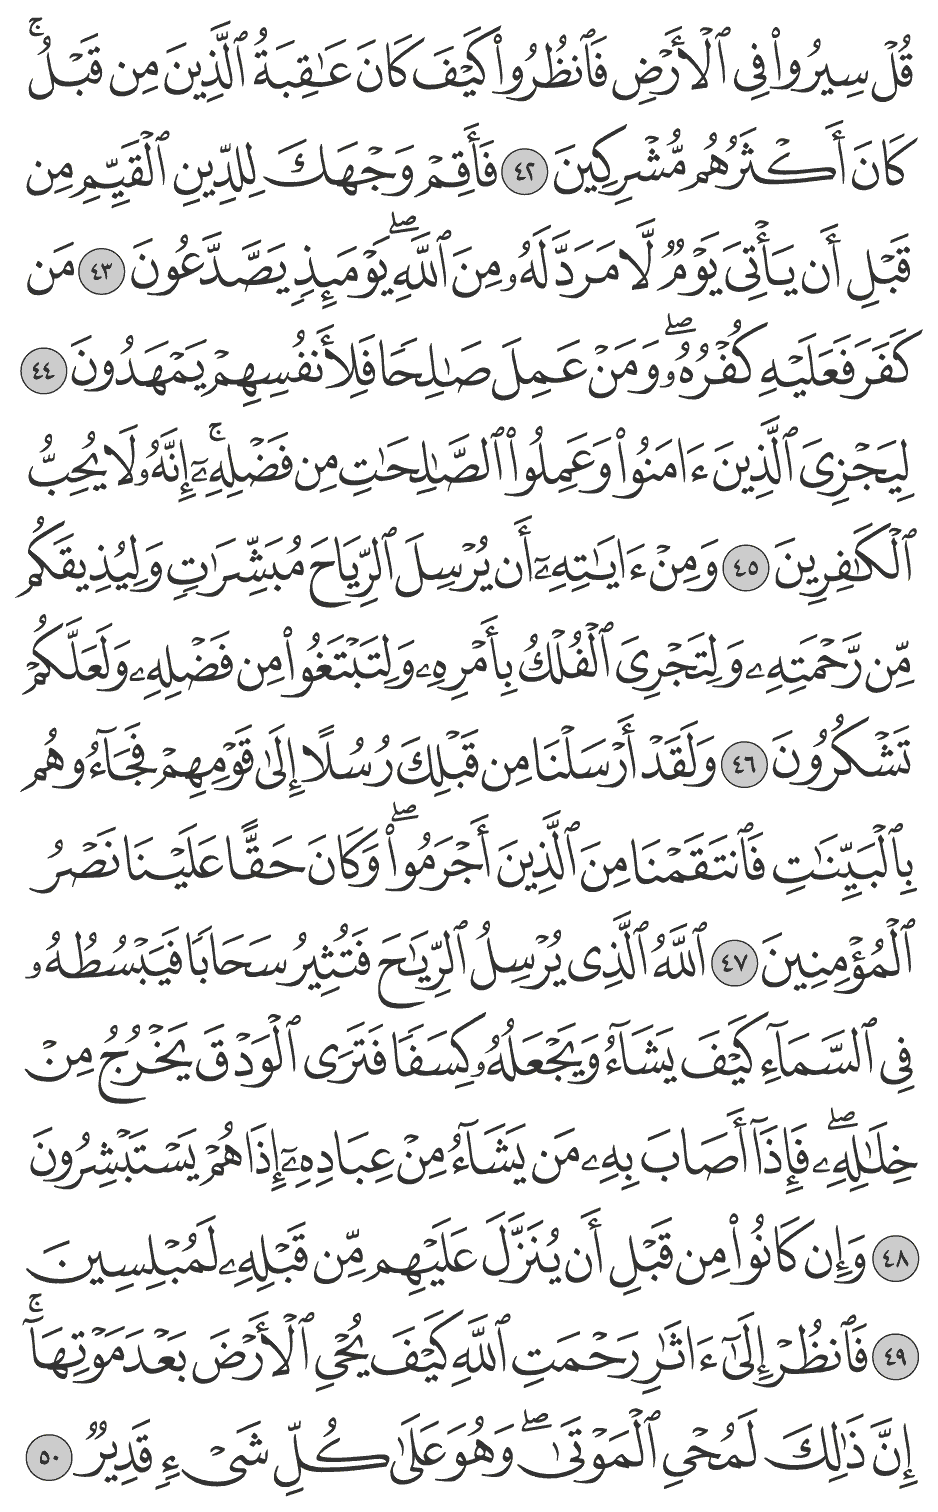 قُلْ سِيرُوا۟ فِى ٱلْأَرْضِ فَٱنظُرُوا۟ كَيْفَ كَانَ عَـٰقِبَةُ ٱلَّذِينَ مِن قَبْلُ ۚ
كَانَ أَكْثَرُهُم مُّشْرِكِينَ ٤٢ فَأَقِمْ وَجْهَكَ لِلدِّينِ ٱلْقَيِّمِ مِن
قَبْلِ أَن يَأْتِىَ يَوْمٌ لَّا مَرَدَّ لَهُۥ مِنَ ٱللَّهِ ۖ يَوْمَئِذٍ يَصَّدَّعُونَ ٤٣ مَن
كَفَرَ فَعَلَيْهِ كُفْرُهُۥ ۖ وَمَنْ عَمِلَ صَـٰلِحًا فَلِأَنفُسِهِمْ يَمْهَدُونَ ٤٤
لِيَجْزِىَ ٱلَّذِينَ ءَامَنُوا۟ وَعَمِلُوا۟ ٱلصَّـٰلِحَـٰتِ مِن فَضْلِهِۦٓ ۚ إِنَّهُۥ لَا يُحِبُّ
ٱلْكَـٰفِرِينَ ٤٥ وَمِنْ ءَايَـٰتِهِۦٓ أَن يُرْسِلَ ٱلرِّيَاحَ مُبَشِّرَٰتٍ وَلِيُذِيقَكُم
مِّن رَّحْمَتِهِۦ وَلِتَجْرِىَ ٱلْفُلْكُ بِأَمْرِهِۦ وَلِتَبْتَغُوا۟ مِن فَضْلِهِۦ وَلَعَلَّكُمْ
تَشْكُرُونَ ٤٦ وَلَقَدْ أَرْسَلْنَا مِن قَبْلِكَ رُسُلًا إِلَىٰ قَوْمِهِمْ فَجَآءُوهُم
بِٱلْبَيِّنَـٰتِ فَٱنتَقَمْنَا مِنَ ٱلَّذِينَ أَجْرَمُوا۟ ۖ وَكَانَ حَقًّا عَلَيْنَا نَصْرُ
ٱلْمُؤْمِنِينَ ٤٧ ٱللَّهُ ٱلَّذِى يُرْسِلُ ٱلرِّيَـٰحَ فَتُثِيرُ سَحَابًا فَيَبْسُطُهُۥ
فِى ٱلسَّمَآءِ كَيْفَ يَشَآءُ وَيَجْعَلُهُۥ كِسَفًا فَتَرَى ٱلْوَدْقَ يَخْرُجُ مِنْ
خِلَـٰلِهِۦ ۖ فَإِذَآ أَصَابَ بِهِۦ مَن يَشَآءُ مِنْ عِبَادِهِۦٓ إِذَا هُمْ يَسْتَبْشِرُونَ
٤٨ وَإِن كَانُوا۟ مِن قَبْلِ أَن يُنَزَّلَ عَلَيْهِم مِّن قَبْلِهِۦ لَمُبْلِسِينَ
٤٩ فَٱنظُرْ إِلَىٰٓ ءَاثَـٰرِ رَحْمَتِ ٱللَّهِ كَيْفَ يُحْىِ ٱلْأَرْضَ بَعْدَ مَوْتِهَآ ۚ
إِنَّ ذَٰلِكَ لَمُحْىِ ٱلْمَوْتَىٰ ۖ وَهُوَ عَلَىٰ كُلِّ شَىْءٍ قَدِيرٌ ٥٠